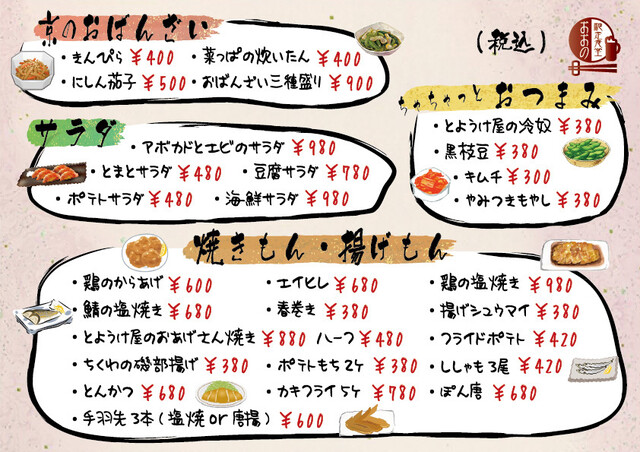 京のおばんざい
・きんぴら ¥400 ・菜っぱの炊いたん ¥400
・にしん茄子 ¥500 ・おばんざい三種盛り ¥900
(税込)
おおの
サラダ
・アボカドとエビのサラダ ¥980
・とまとサラダ ¥480 ・豆腐サラダ ¥780
・ポテトサラダ ¥480 ・海鮮サラダ ¥980
ちゃちゃっと おつまみ
・とようけ屋の冷奴 ¥380
・黒枝豆 ¥380
・キムチ ¥300
・やみつきもやし ¥380
焼きもん・揚げもん
・鶏のからあげ ¥600 ・エイヒレ ¥680 ・鶏の塩焼き ¥980
・鯖の塩焼き ¥680 ・春巻き ¥380 ・揚げシュウマイ ¥380
・とようけ屋のおあげさん焼き ¥880 ハーフ ¥480 ・フライドポテト ¥420
・ちくわの磯部揚げ ¥380 ・ポテトもち2ケ ¥380 ・ししゃも3尾 ¥420
・とんかつ ¥680 ・カキフライ5ケ ¥780 ・ぽん唐 ¥680
・手羽先3本(塩焼or唐揚) ¥600